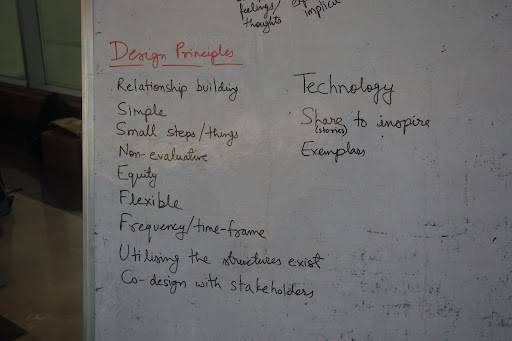 feelings/
thoughts
implicit
Design Principles
Relationship building
Simple
Small steps/things
Non-evaluative
Equity
Flexible
Frequency/time-frame
Utilising the structures exist
Co-design with stakeholders
Technology
Share to inspire
(stories)
Exemplars